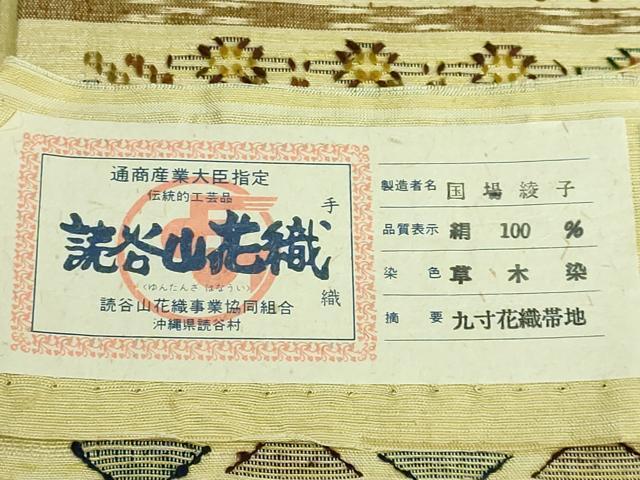 通商産業大臣指定
伝統的工芸品
読谷山花織
〈ゆんたんざ はなうい〉
手織
読谷山花織事業協同組合
沖縄県読谷村
製造者名 国場綾子
品質表示 絹 100 %
染色 草木染
摘要 九寸花織帯地